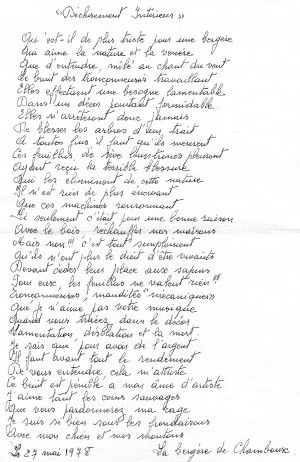 "Déchirement Intérieur"
Qui est-il de plus triste pour une bergère
Qui aime la nature et la vénère
Que d'entendre, mêlé au chant du vent
Le bruit des tronçonneuses travaillant
Elles effectuent une besogne lamentable
Dans un décor pourtant formidable
Elles n'arrêteront donc jamais
De blesser les arbres d'un trait
A toutes fins il faut qu'ils meurent
Ces feuillus de sève leurs troncs pleurent
Ayant reçu la terrible blessure
Qui les éliminent de cette nature
Il n'est rien de plus énervant
Que ces machines ronronnant
Si seulement c'était pour une bonne raison
Avec le bois, réchauffer nos maisons
Mais non!!! c'est tout simplement
Qu'ils n'ont plus le droit d'être vivants
Devant céder leur place aux sapins
Pour eux, les feuillus ne valent rien
tronçonneuses, maudites "mécaniques"
Que je n'aime pas votre musique
Quand vous tracez dans le décor
Lamentation, désolation et la mort
Je sais que pour avoir de l'argent
Il faut avant tout le rendement
De vous entendre, cela m'attriste
Ce bruit est pénible a mon âme d'artiste
J'aime tant les coins sauvages
Que vous pardonnerez ma rage
Je suis si bien sous les frondaisons
Avec mon chien et mes moutons
Le 27 mai 1978 La bergère de Chambeux